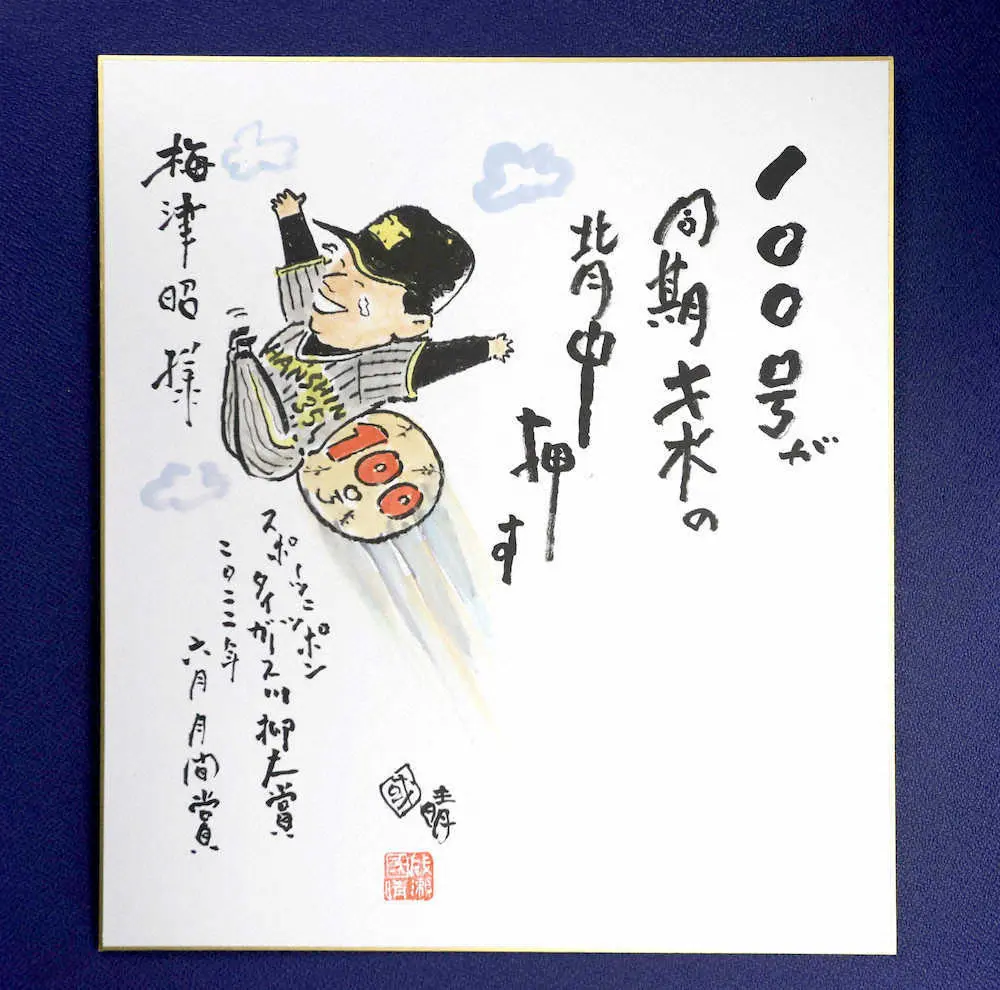 100号が
同期才木の
背中押す
HANSHIN
35
100号
梅津昭様
スポーツニッポン
タイガース川柳大賞
二〇二二年
六月月間賞
國晴
成瀬國晴